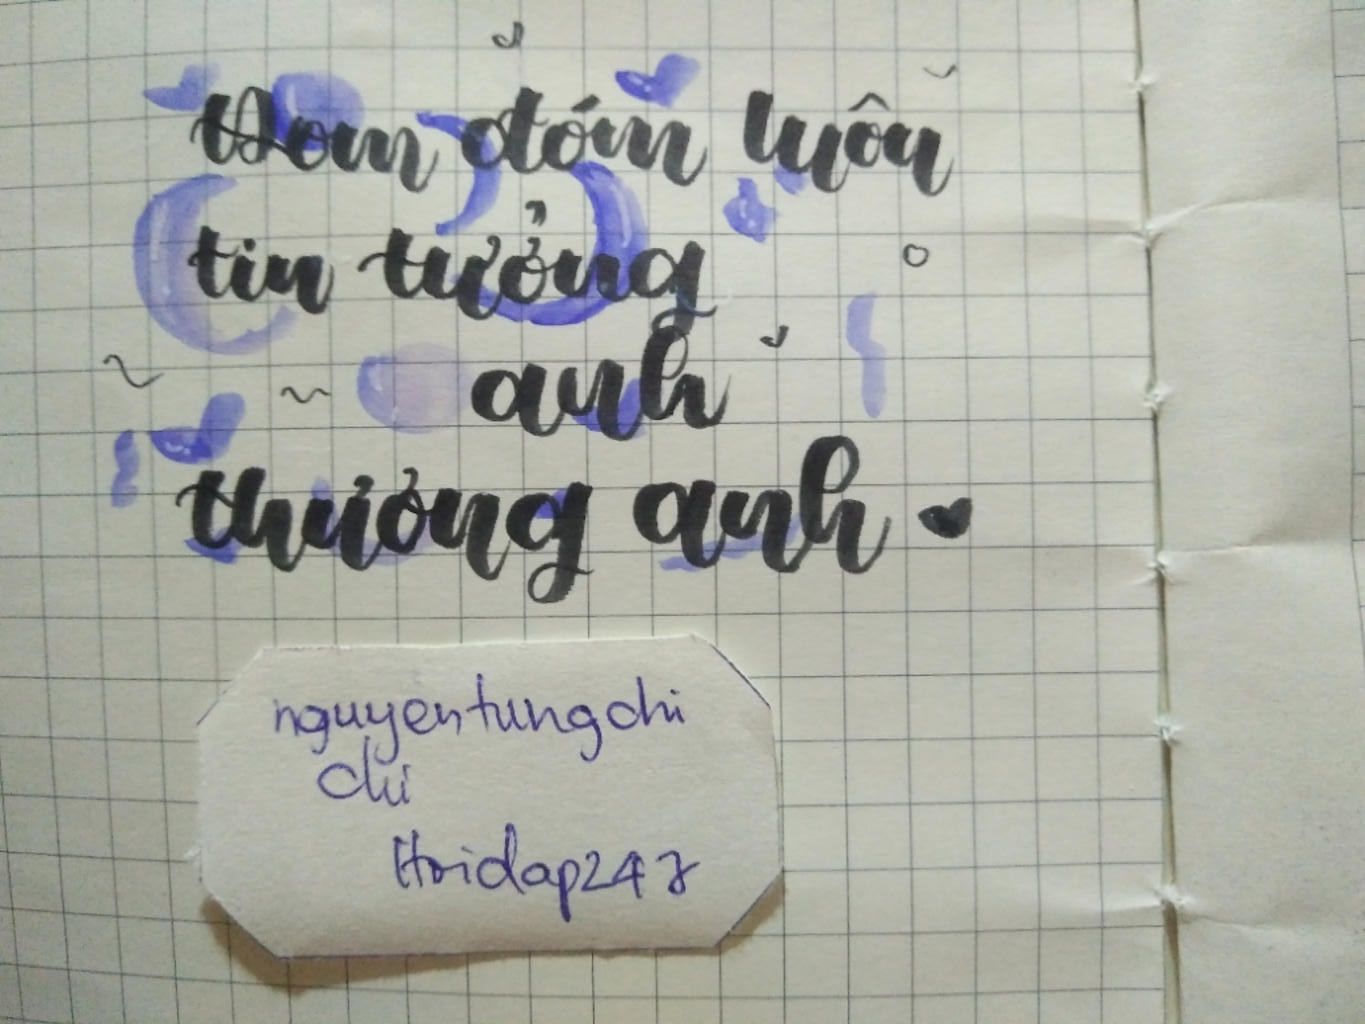 Đom đóm luôn
tin tưởng
anh
thương anh
nguyentungchi
chi
Hoidap247